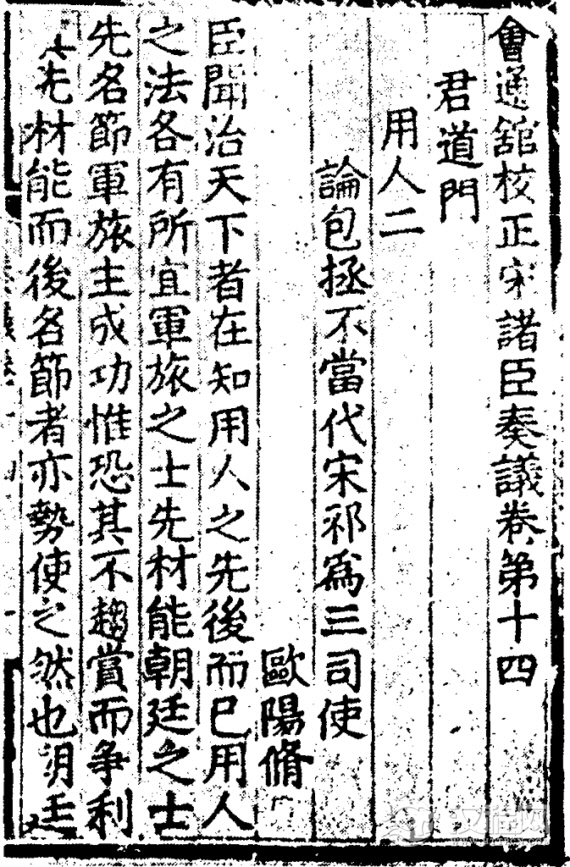 會通舘校正宋諸臣奏議卷第十四
君道門
用人二
論包拯不當代宋祁爲三司使
歐陽脩
臣聞治天下者在知用人之先後而已用人
之法各有所宜軍旅之士先材能朝廷之士
先名節軍旅主成功惟恐其不趨賞而争利
先材能而後名節者亦勢使之然也朝廷